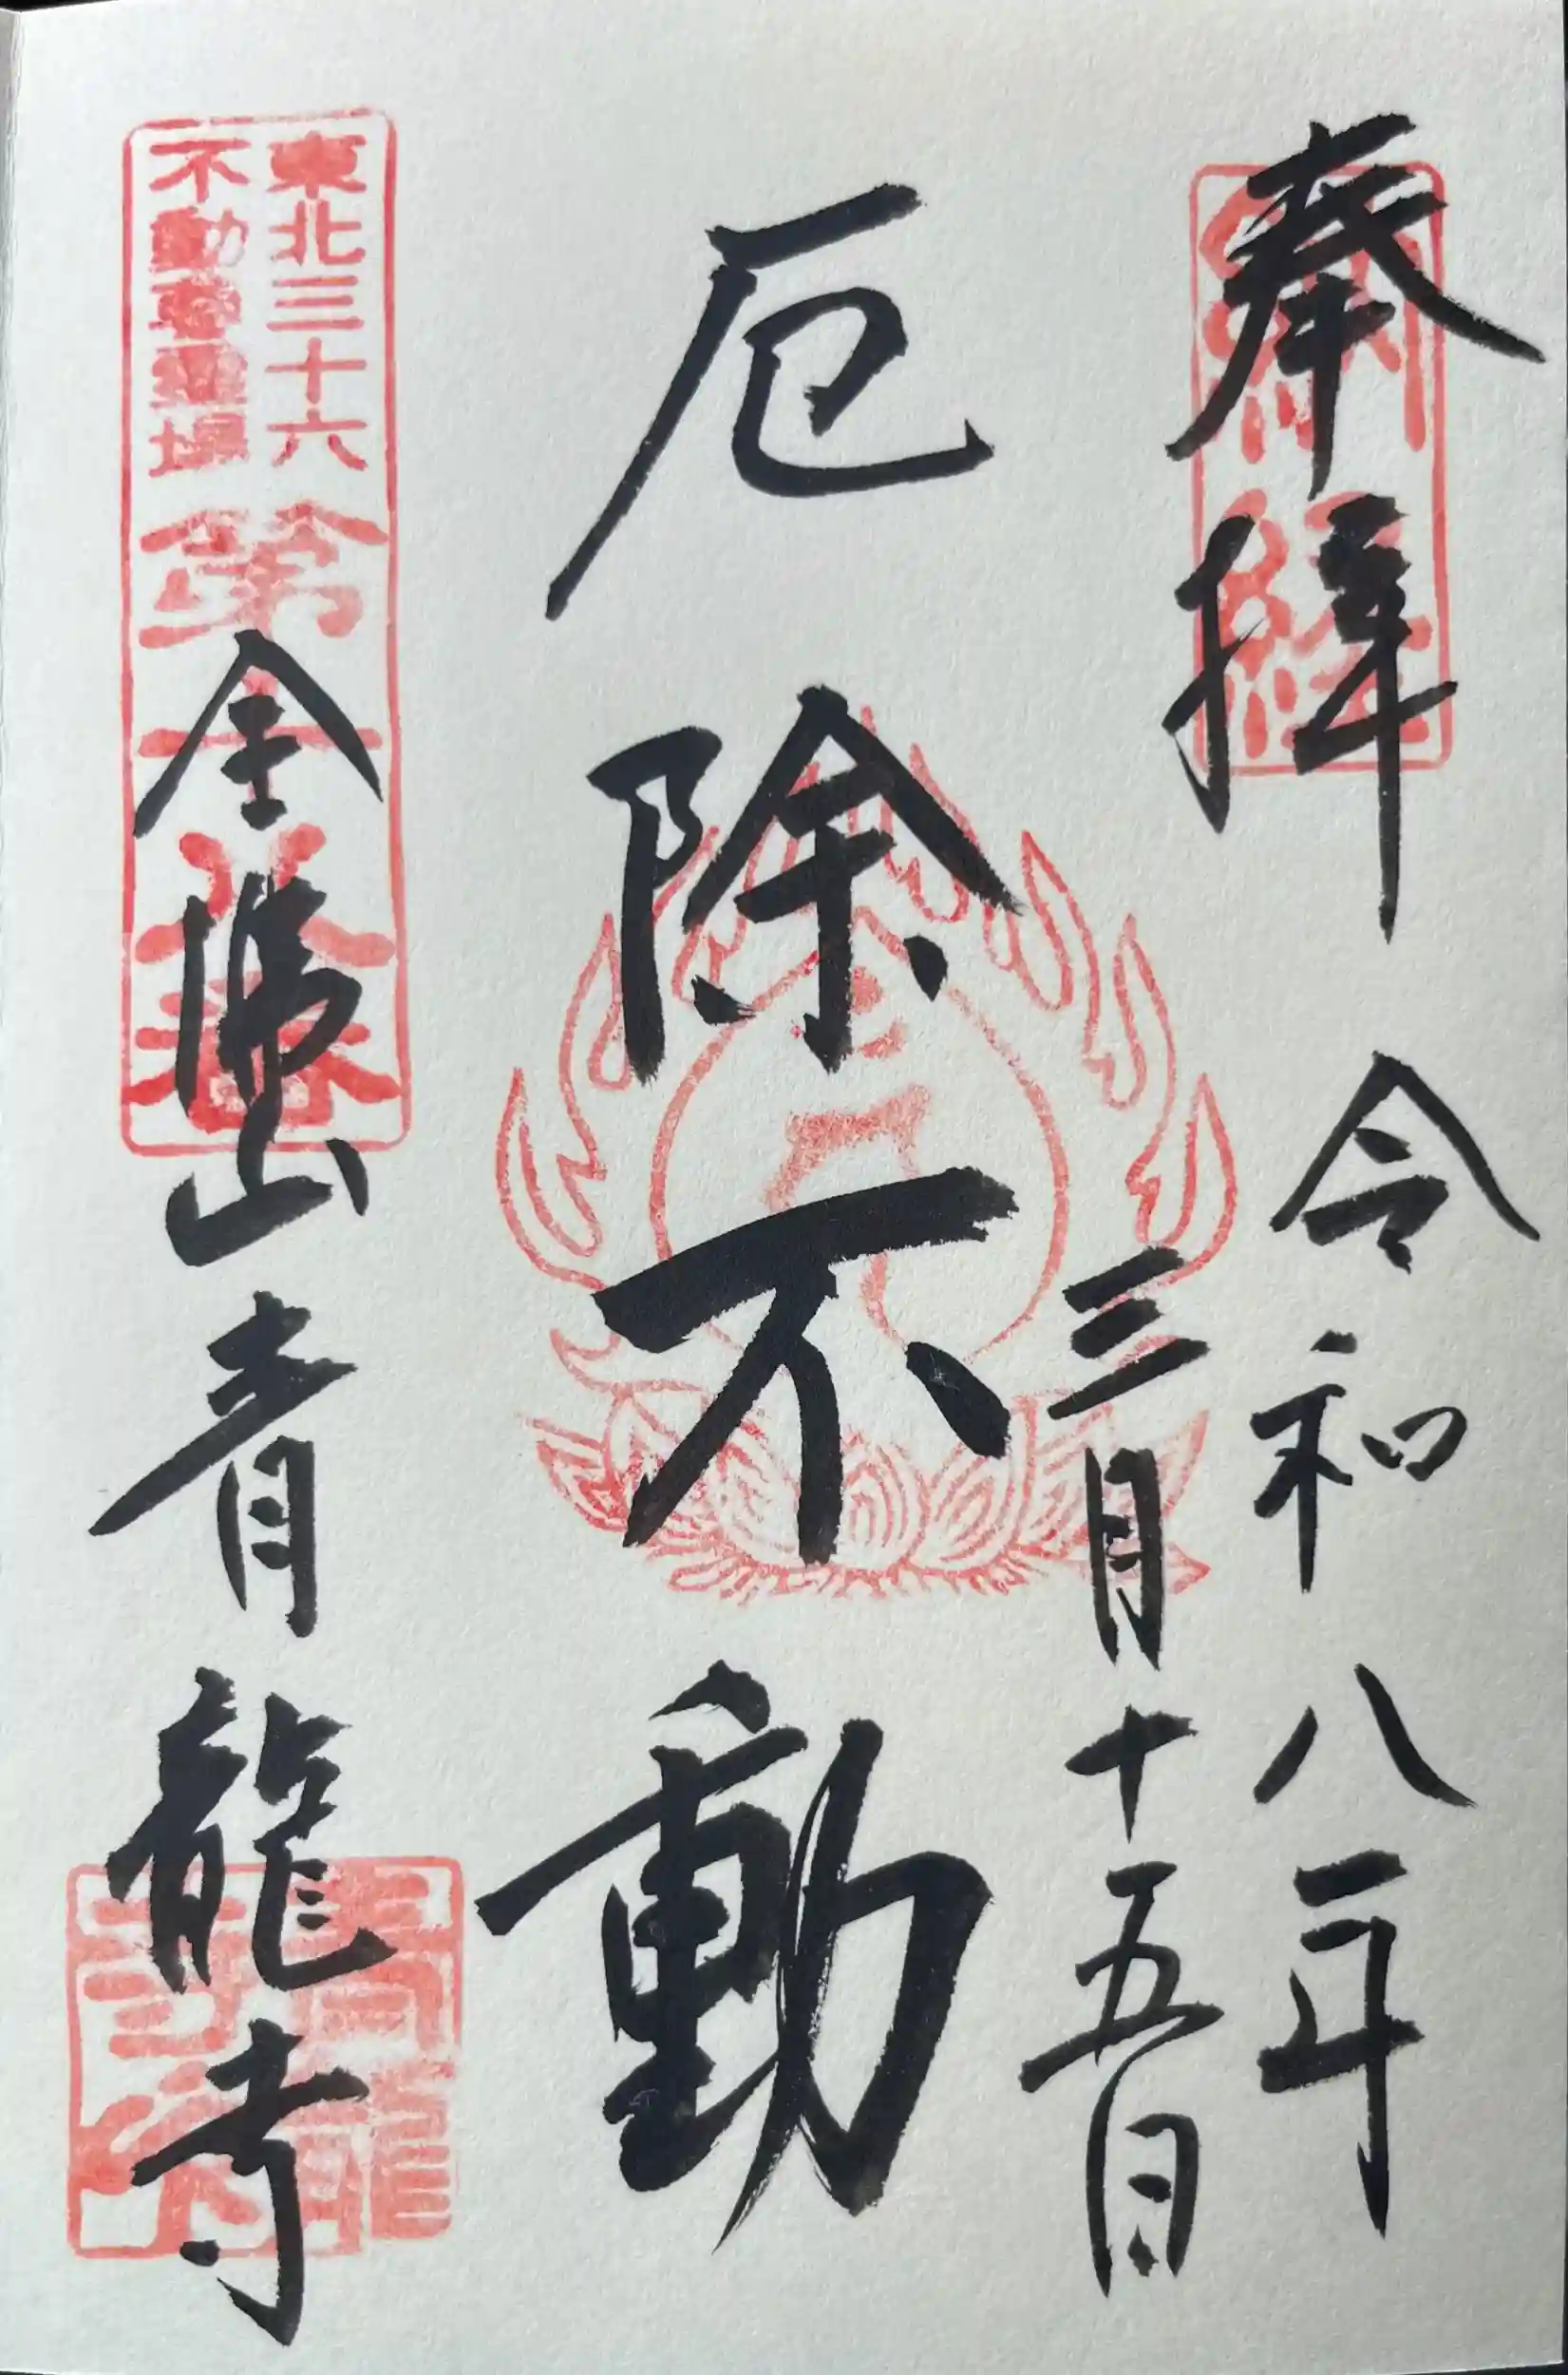 奉拝
納経
令和八年
三月十五日
厄除不動
東北三十六
不動尊霊場
第十番
金山青龍寺
青龍